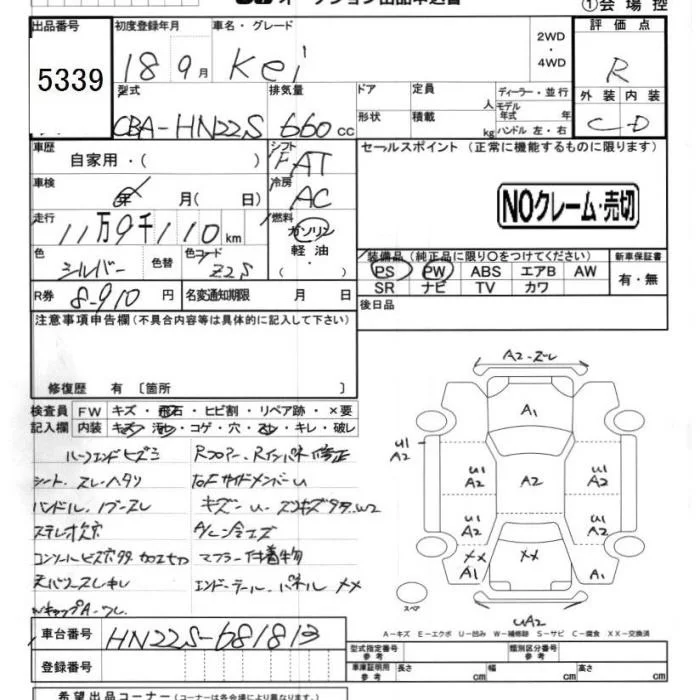 オークション出品申込書
①会場控
出品番号 初度登録年月 車名・グレード 2WD 評価点
5339 18 9月 Kei ・4WD R
型式 排気量 ドア 定員 人 ディーラー・並行 外装 内装
CBA-HN22S 660cc 形状 積載 kg モデル年式 年 ハンドル 左・右 C-D
車歴 自家用・( ) シフト FAT セールスポイント (正常に機能するものに限ります)
車検 年 月( 日) 冷房 AC NOクレーム・売切
走行 11万9千110km 燃料 ガソリン 軽油 ・( )
色 シルバー 色替 色コード Z2S
装備品(純正品に限り○をつけてください) 新車保証書
PS PW ABS エアB AW 有・無
SR ナビ TV カワ
R券 8-910円 名変通知期限 月 日 後日品
注意事項申告欄(不具合内容等は具体的に記入して下さい)
修復歴 有 〔箇所 〕
検査員 FW キズ・飛石・ヒビ割・リペア跡・×要
記入欄 内装 キズ・汚レ・コゲ・穴・スレ・キレ・破レ
Rフロアー、Rインパネ修正
シート、スレ、ヘタリ
ハンドル、ノブ―スレ
A/C―冷エズ
マフラー付着物
エンドーテール、パネル ××
車台番号 HN22S-681813
登録番号
希望出品コーナー(コーナーは各会場により異なります)
A2-ズレ
A1
U1
A2
U1
A2
A2
U1
A2
U1
A2
U1
A2
U1
A2
××
A1
××
A1
スペア
UA2
A-キズ E-エクボ U-凹み W-補修跡 S-サビ C-腐食 XX-交換済
型式指定番号 参考 類別区分番号 参考
車庫証明用 参考 長さ cm 幅 cm 高さ cm